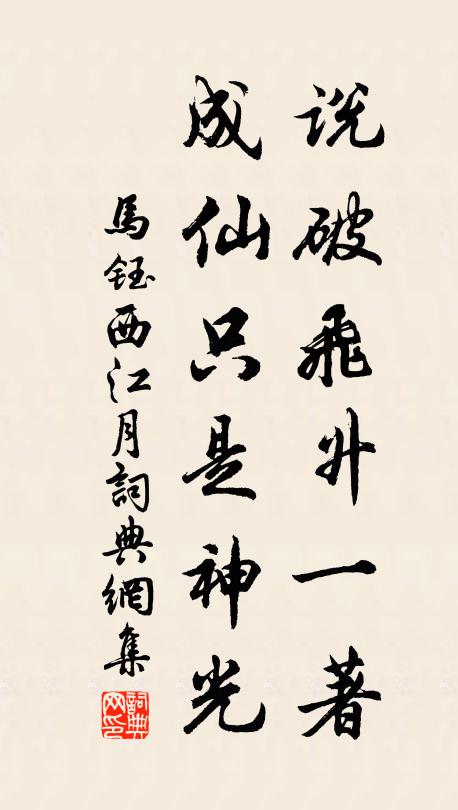 说破飛升一著
成仙只是神光
馬鈺西江月詞典網集
詞典网印